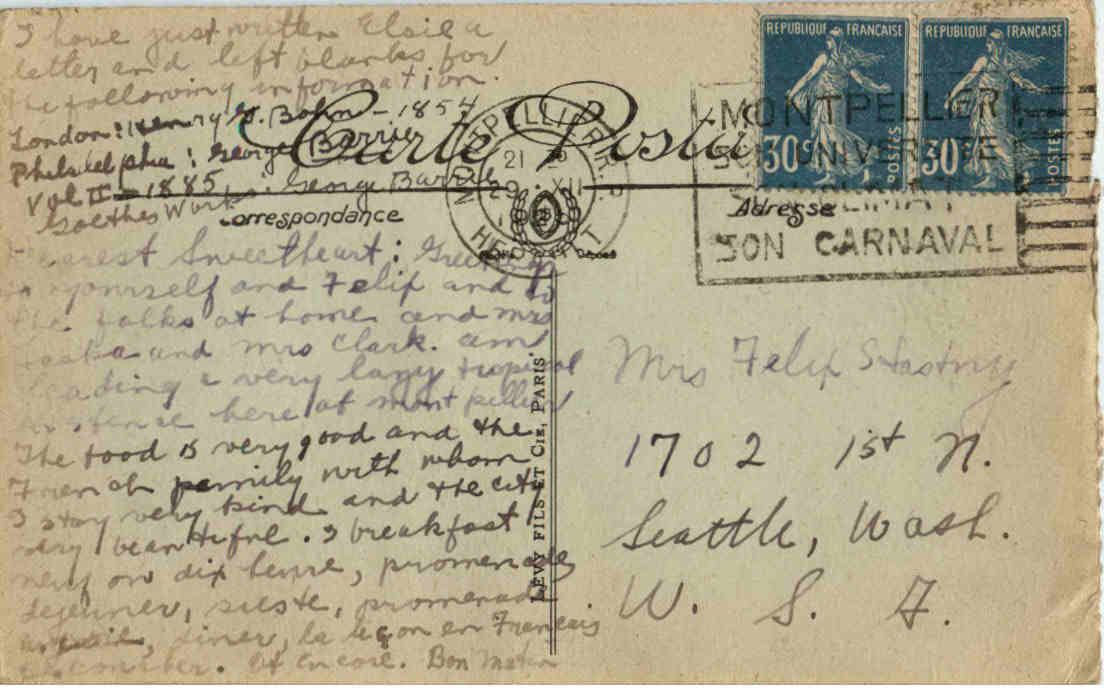 I have just written Elsie a
letter and left blanks for
the following information.
London: Henry G. Bohn - 1854
Philadelphia: George Barrie
Vol II - 1885 : George Barrie
Goethes Works
Carte Postale
Correspondance
Adresse
REPUBLIQUE FRANÇAISE
30c POSTES
REPUBLIQUE FRANÇAISE
30c POSTES
MONTPELLIER
SON UNIVERSITE
SON CLIMAT
SON CARNAVAL
MONTPELLIER R.P.
21
29 XII
HERAULT
Dearest Sweetheart: Greetings
to yourself and Felix and to
the folks at home and Mrs
and Mrs Clark. am
leading a very lazy tropical
existence here at Montpellier
The food is very good and the
French pamily with whom
I stay very kind and the city
very beautiful. I breakfast
neuf ou dix heure, promenade,
dejeuner, sieste, promenade
diner, la leçon en Francais
et encore. Bon Matin
LÉVY FILS ET CIE, PARIS
Mrs Felix Stastny
1702 1st N.
Seattle, Wash.
U. S. A.